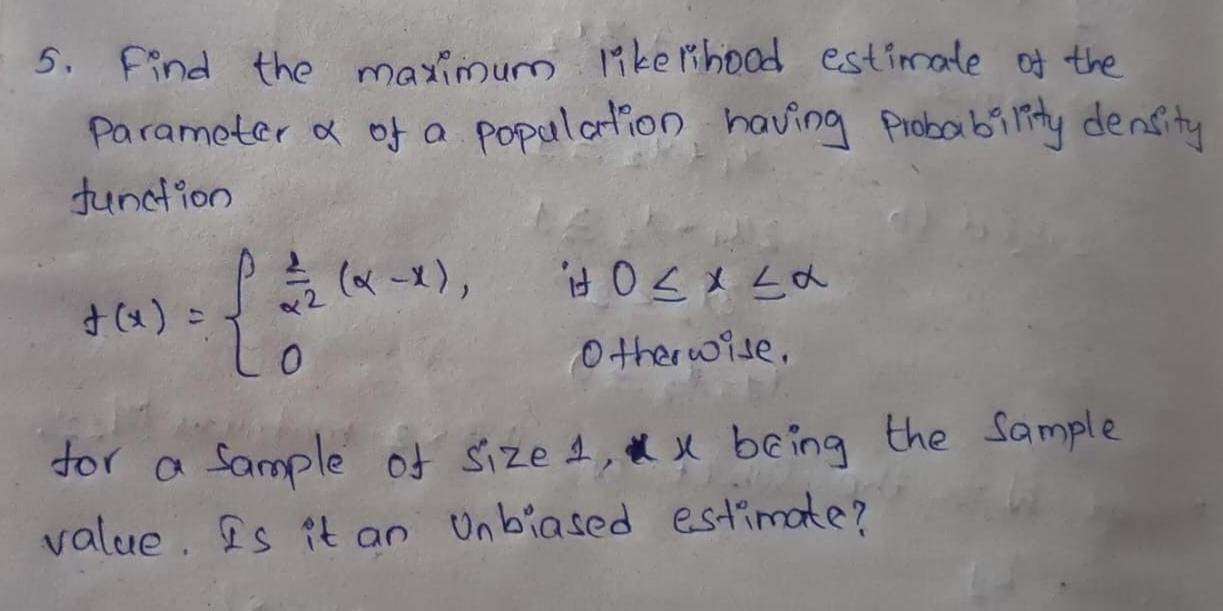 5. Find the maximum likelihood estimate of the
Parameter α of a population having Probability density
function
f(x) = { 2/α² (α - x), if 0 ≤ x ≤ α
0 Otherwise.
for a Sample of size 1, x being the Sample
value. Is it an Unbiased estimate?